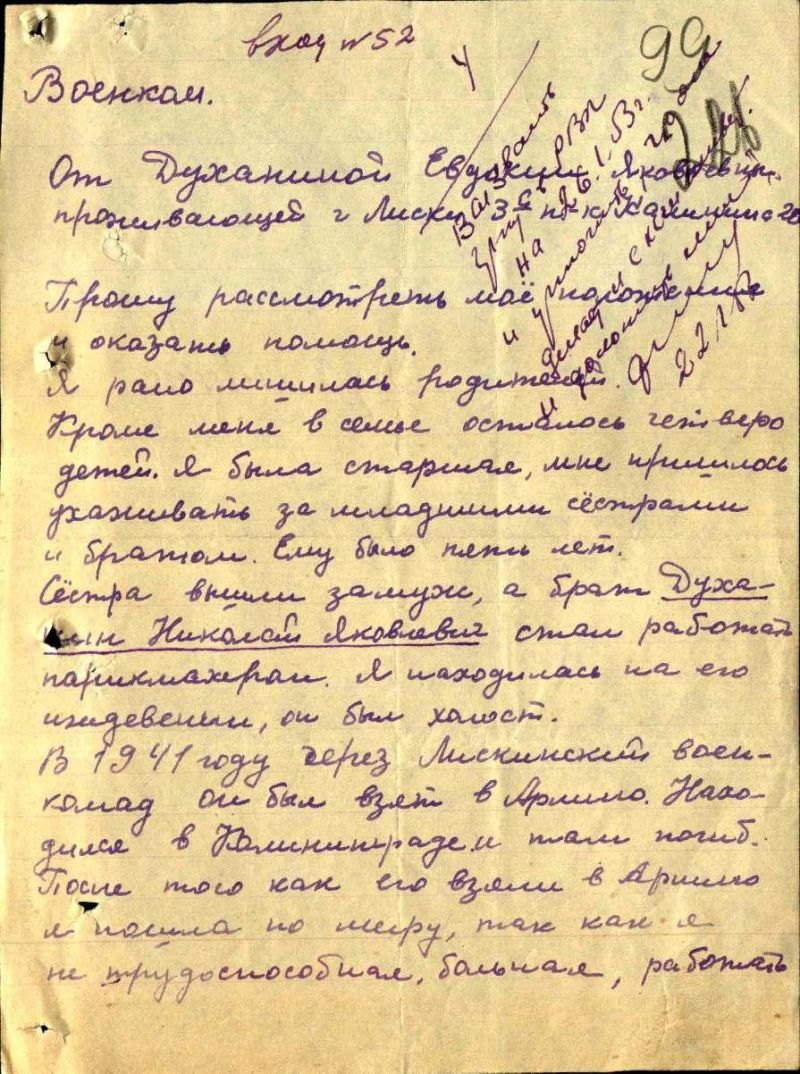 вход №52
99
Военком.
Вызвать
эту в РВК
на 26.I.53г.
и уточнить, что она
делает с кем живет.
и доложить мне
22.I.53
От Духаниной Евдокии Яковлевны
проживающей г Лиски 3й пр-к Калинина 28
Прошу рассмотреть моё положение
и оказать помощь.
Я рано лишилась родителей.
Кроме меня в семье осталось четверо
детей. Я была старшая, мне пришлось
ухаживать за младшими сёстрами
и братом. Ему было пять лет.
Сёстра вышли замуж, а брат Духа-
нин Николай Яковлевич стал работать
парикмахером. Я находилась на его
иждевении, он был холост.
В 1941 году через Лискинский воен-
комад он был взят в Армию. Нахо-
дился в Калининграде и там погиб.
После того как его взяли в Армию
я пошла по миру, так как я
не трудоспособная, больная, работать